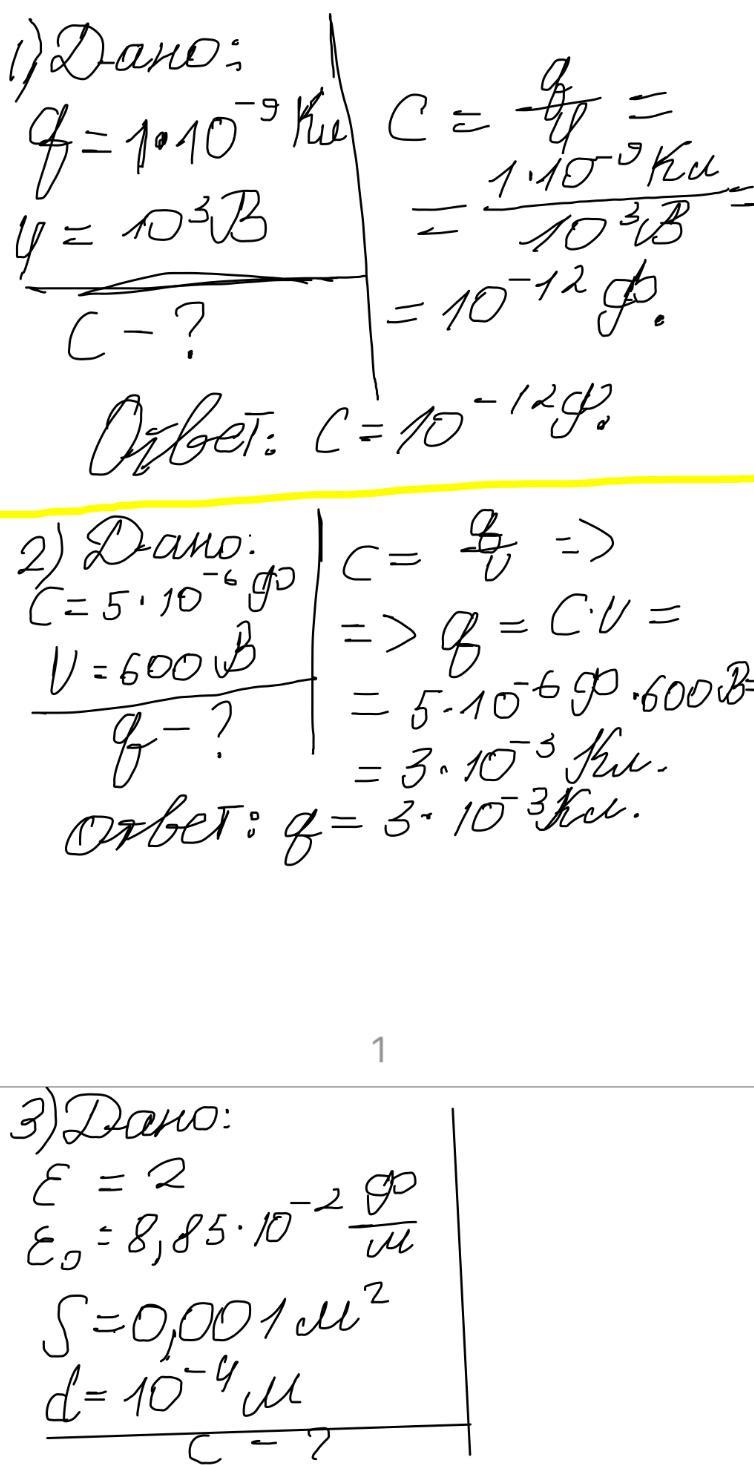 1) Дано:
q = 1·10⁻⁹ Кл
φ = 10³ В
C - ?
C = q/φ =
= 1·10⁻⁹ Кл / 10³ В =
= 10⁻¹² Ф.
Ответ: C = 10⁻¹² Ф.
2) Дано:
C = 5·10⁻⁶ Ф
U = 600 В
q - ?
C = q/U =>
=> q = C·U =
= 5·10⁻⁶ Ф · 600 В =
= 3·10⁻³ Кл.
Ответ: q = 3·10⁻³ Кл.
1
3) Дано:
ε = 2
ε₀ = 8,85·10⁻² Ф/м
S = 0,001 м²
d = 10⁻⁴ м
C - ?